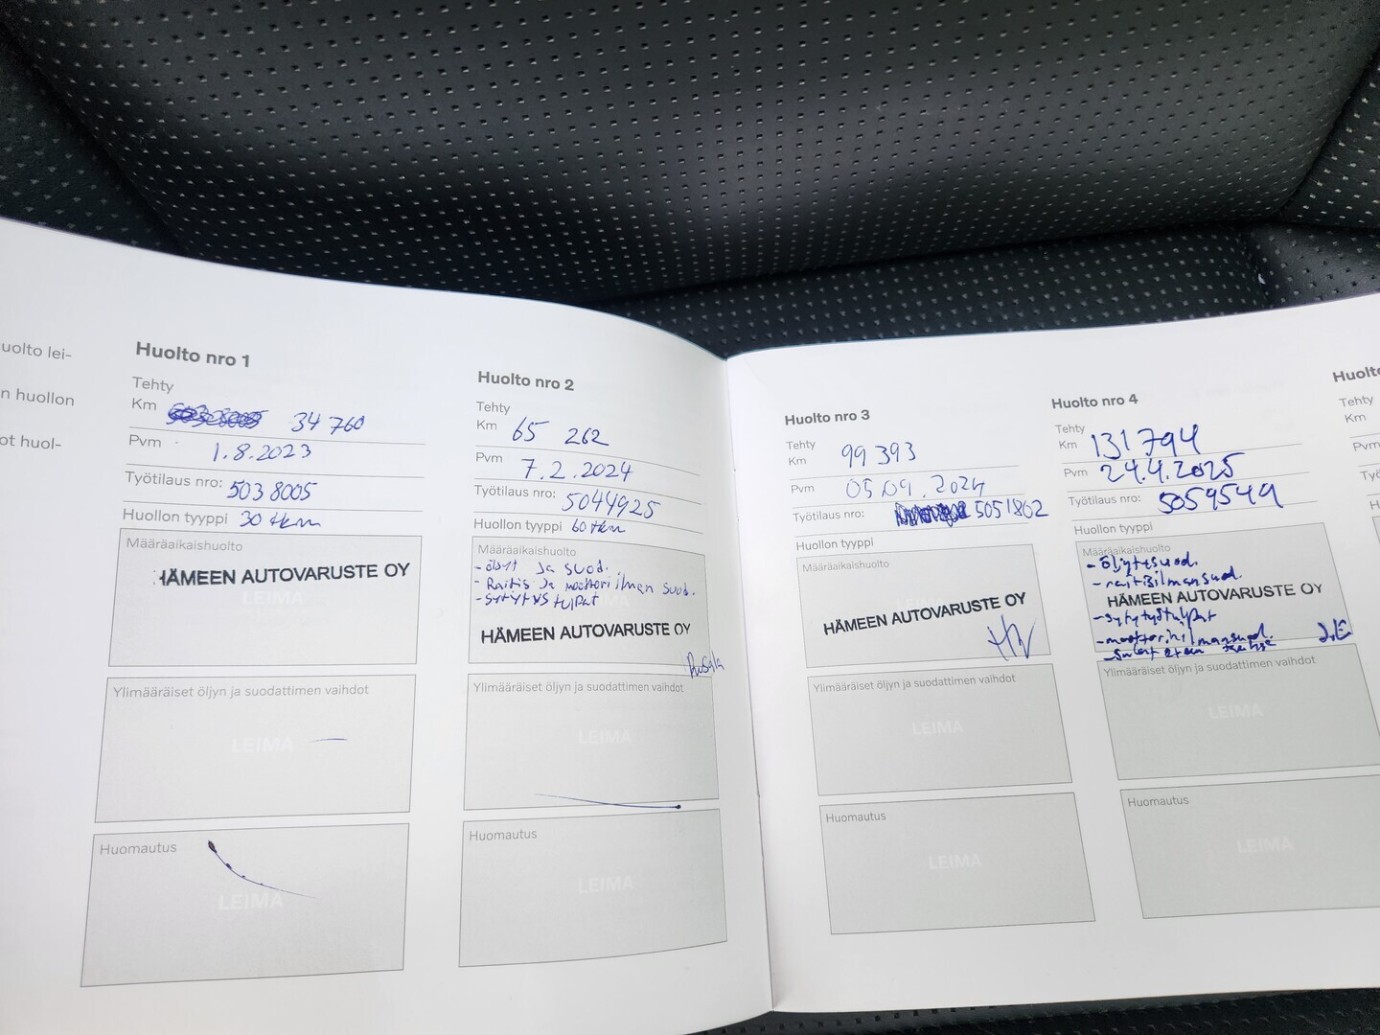 uolto lei-
n huollon
ot huol-
Huolto nro 1
Tehty
Km 34 760
Pvm 1.8.2023
Työtilaus nro: 5038005
Huollon tyyppi 30 tkm
Määräaikaishuolto
HÄMEEN AUTOVARUSTE OY
LEIMA
Ylimääräiset öljyn ja suodattimen vaihdot
LEIMA
Huomautus
LEIMA
Huolto nro 2
Tehty
Km 65 262
Pvm 7.2.2024
Työtilaus nro: 5044925
Huollon tyyppi 60 tkm
Määräaikaishuolto
- öljyt ja suod.
- Raitis ja moottori ilman suod.
- sytytys tulpat
HÄMEEN AUTOVARUSTE OY
Ylimääräiset öljyn ja suodattimen vaihdot
LEIMA
Huomautus
LEIMA
Huolto nro 3
Tehty
Km 99 393
Pvm 05.09.2024
Työtilaus nro: 5051802
Huollon tyyppi
Määräaikaishuolto
HÄMEEN AUTOVARUSTE OY
Ylimääräiset öljyn ja suodattimen vaihdot
LEIMA
Huomautus
LEIMA
Huolto nro 4
Tehty
Km 131794
Pvm 24.4.2025
Työtilaus nro: 5059549
Huollon tyyppi
Määräaikaishuolto
- öljytsuod.
- raitisilmansuod.
HÄMEEN AUTOVARUSTE OY
- sytytystulpat
- moottorinilmansuod.
Ylimääräiset öljyn ja suodattimen vaihdot
LEIMA
Huomautus
LEIMA
Huolto
Tehty
Km
Pvm